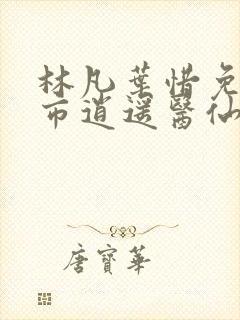 林凡葉惜免
市逍遥醫仙
唐寶華